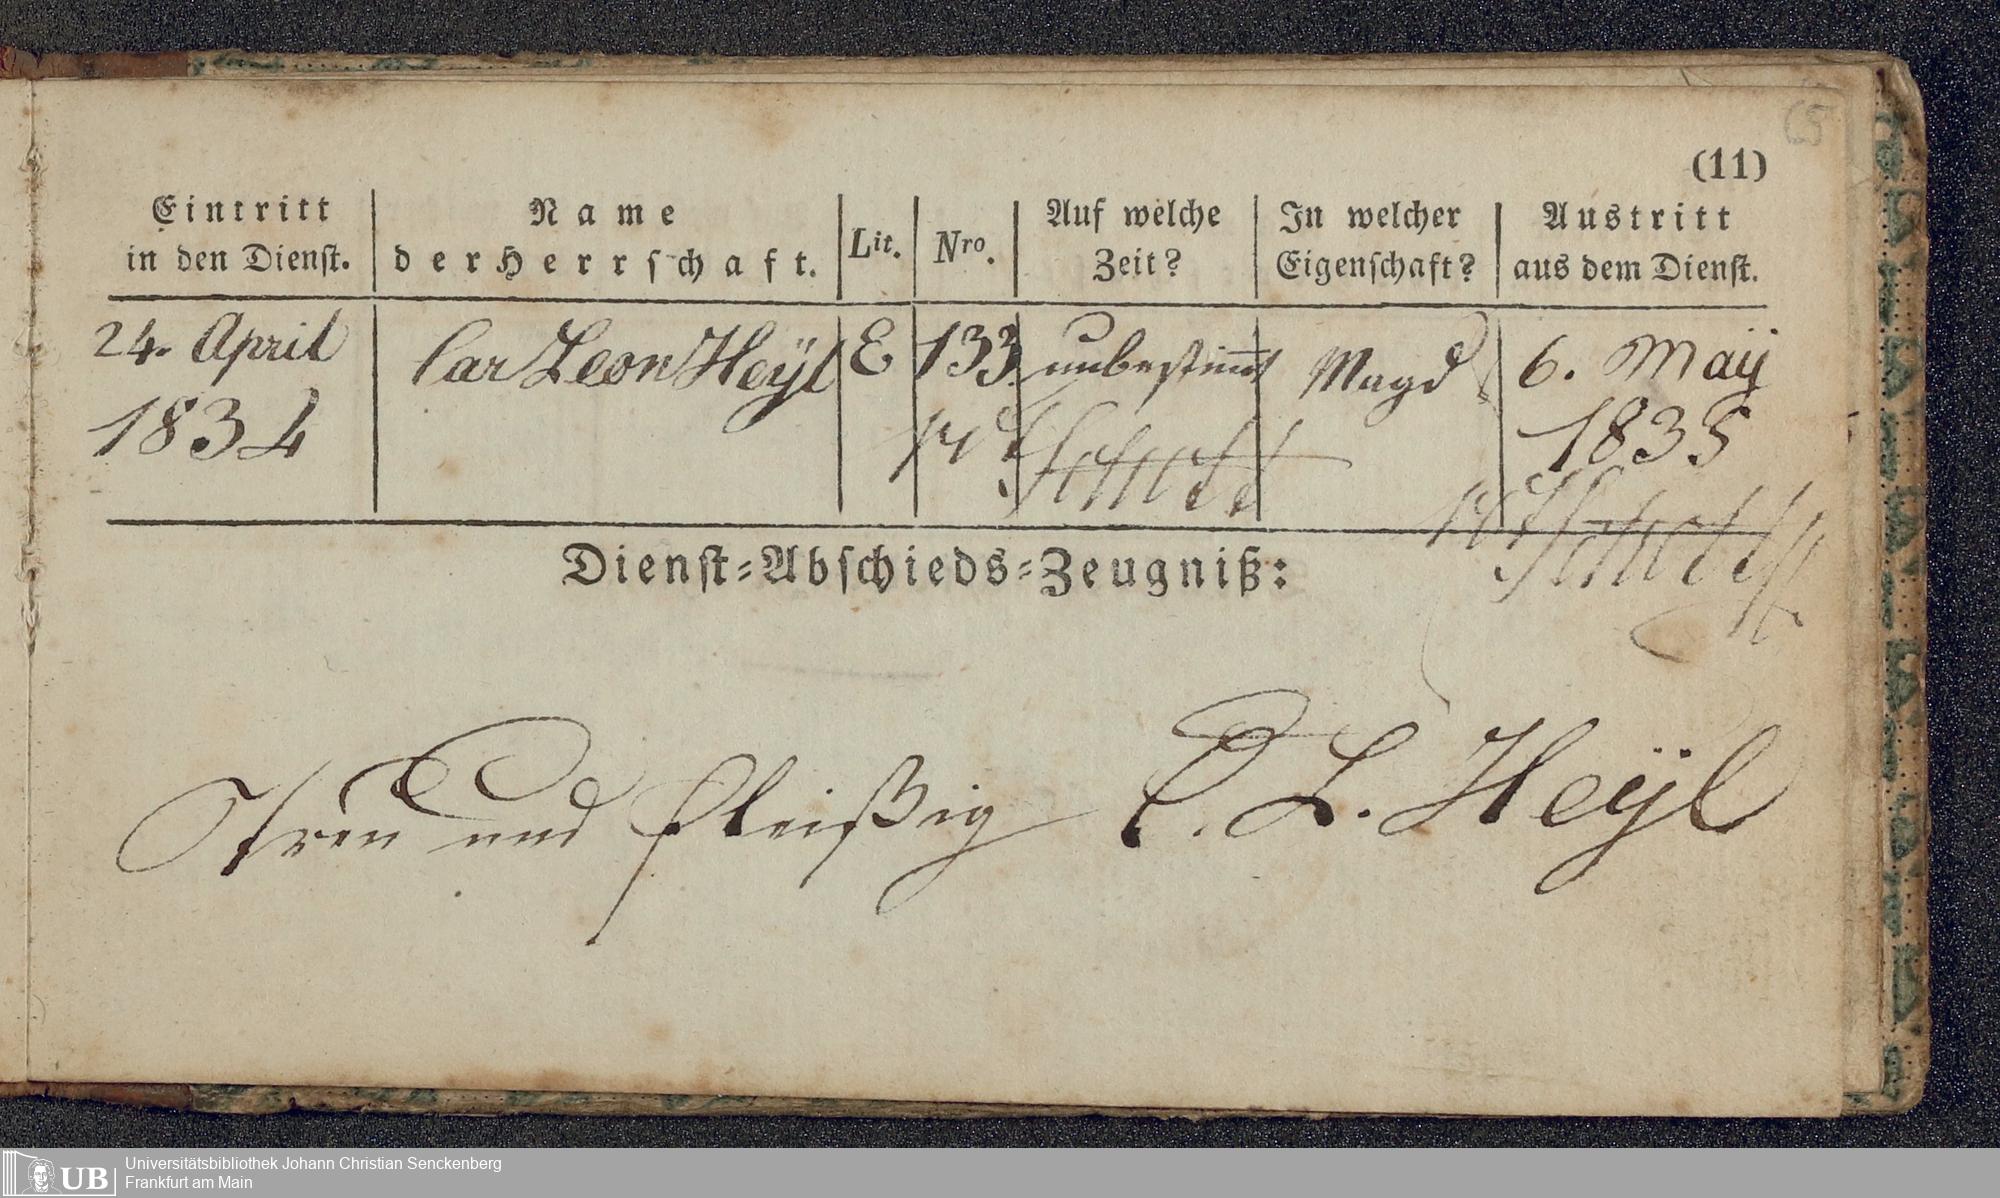 65
(11)
Eintritt in den Dienst. Name der Herrschaft. Lit. Nro. Auf welche Zeit? In welcher Eigenschaft? Austritt aus dem Dienst.
24. April 1834 Car Leon Heÿl E 133 unbestimt Magd 6. Maÿ 1835
Dienst-Abschieds-Zeugniß:
Treu und fleißig C. L. Heÿl
UB
Universitätsbibliothek Johann Christian Senckenberg
Frankfurt am Main